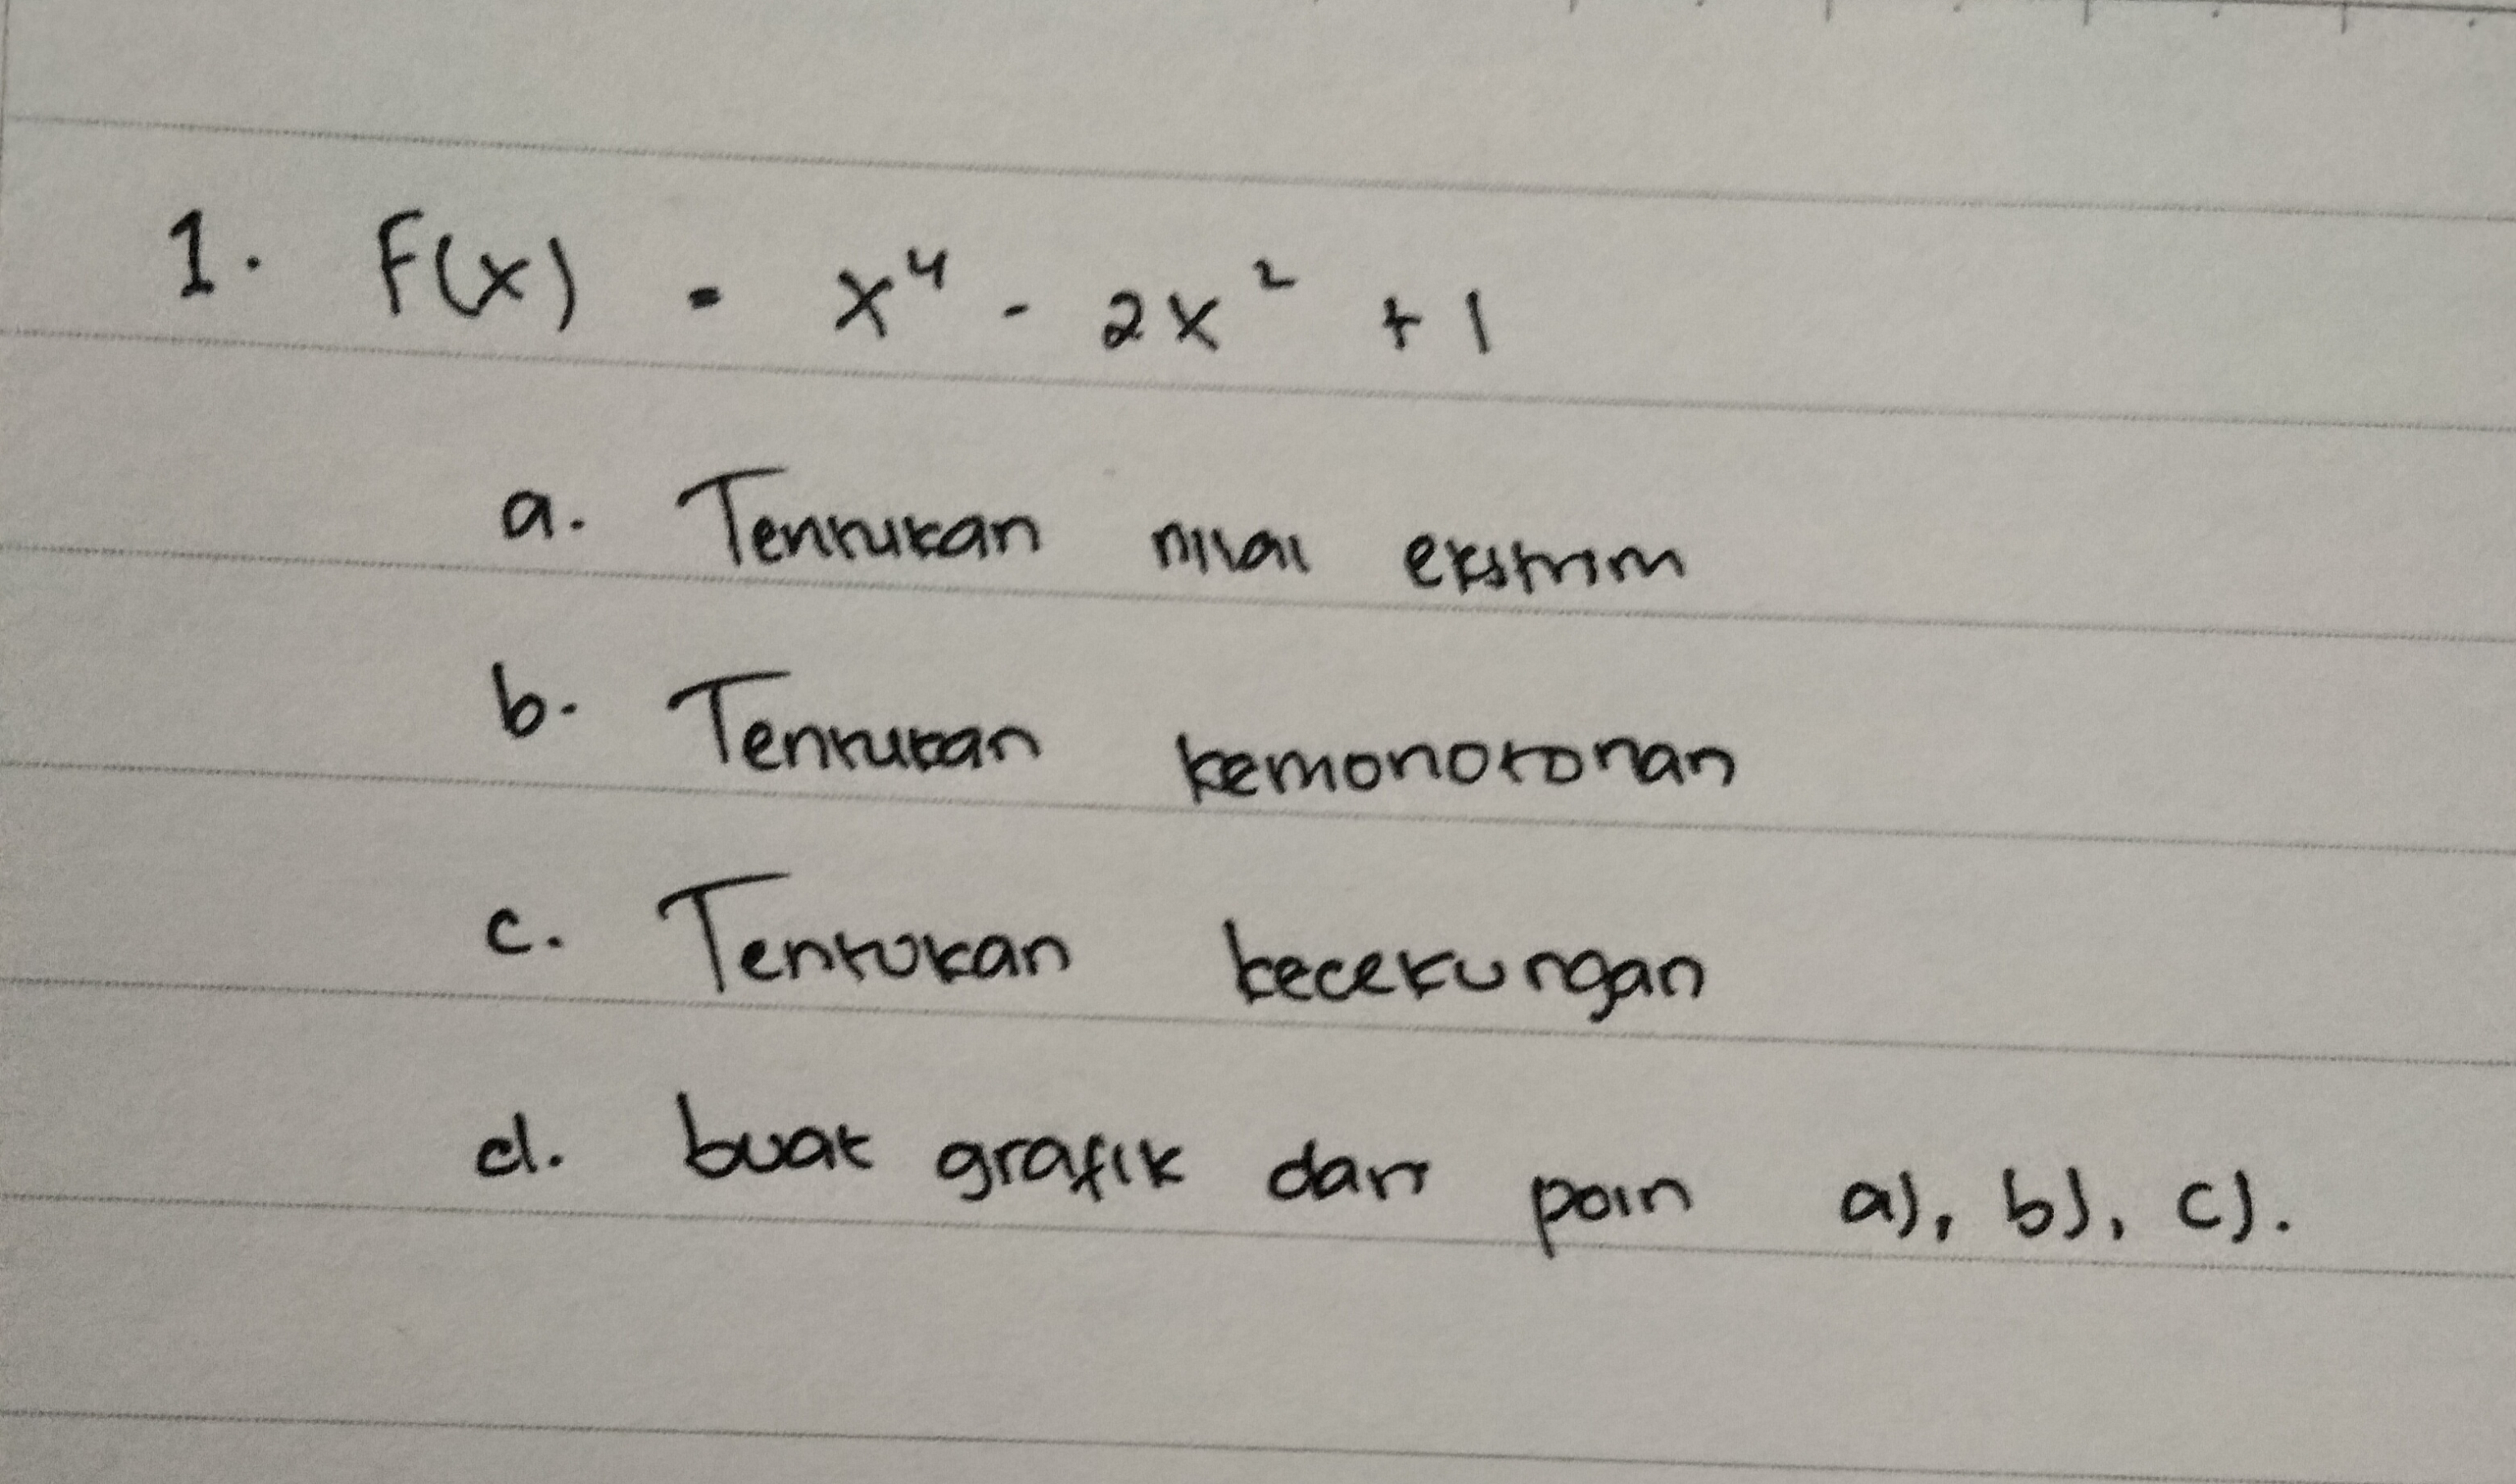 1. F(x) = x⁴ - 2x² + 1
a. Tentukan nilai ekstrim
b. Tentukan kemonotonan
c. Tentukan kecekungan
d. buat grafik dari poin a), b), c).